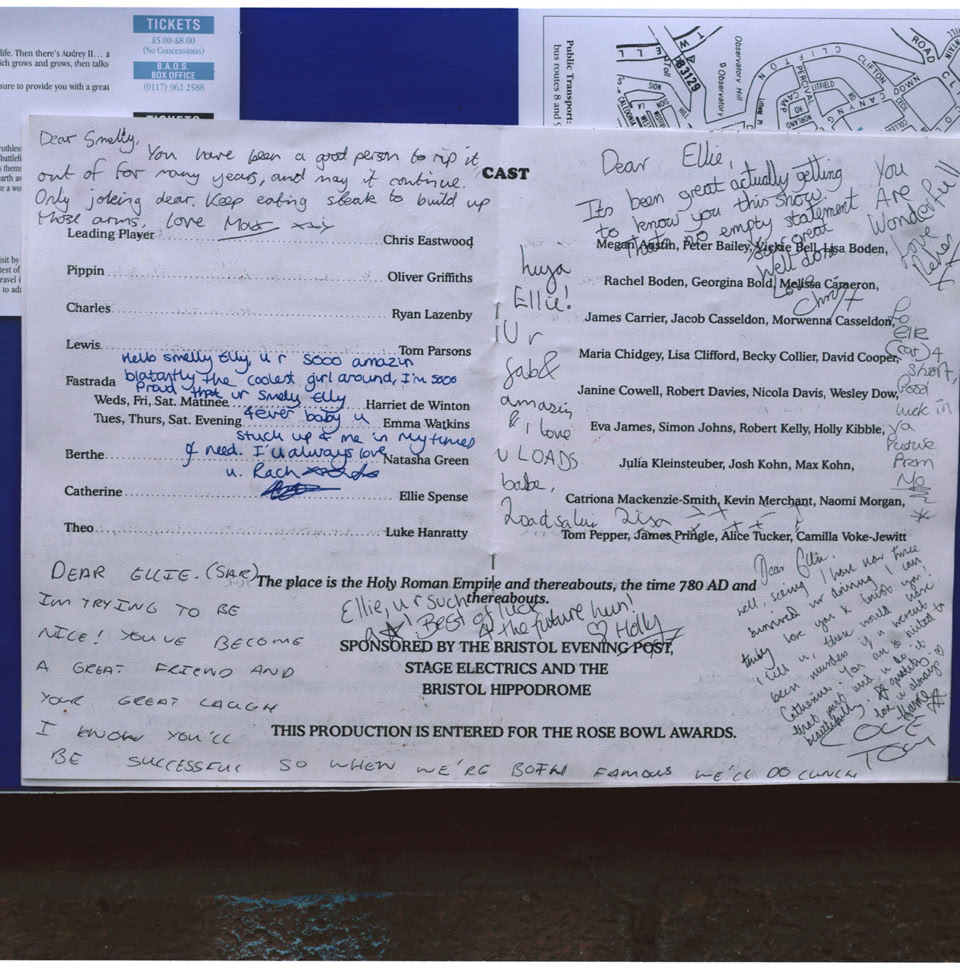 life. Then there's Audrey II... a
ich grows and grows, then talks
sure to provide you with a great
TICKETS
£5.00-£8.00
(No Concessions)
B.A.O.S.
BOX OFFICE
(0117) 962 2588
TICKETS
Public Transport:
bus routes 8 and 9
B3129
Observatory Hill
Observatory
CLIFTON
ROAD
LITFIELD
PERCIVAL
CANYNG
SION
Dear Smelly,
You have been a good person to rip it
out of for many years, and may it continue.
Only joking dear. Keep eating steak to build up
those arms, love Max
CAST
Leading Player Chris Eastwood
Pippin Oliver Griffiths
Charles Ryan Lazenby
Lewis Tom Parsons
Fastrada
Weds, Fri, Sat. Matinee Harriet de Winton
Tues, Thurs, Sat. Evening Emma Watkins
Berthe Natasha Green
Catherine Ellie Spense
Theo Luke Hanratty
Hello smelly Elly u r sooo amazin
blatantly the coolest girl around, I'm sooo
Proud that ur smely Elly
4ever baby u
stuck up 4 me in my times
of need. I'll always love
u. Rach
Dear Ellie,
Its been great actually getting
to know you this show.
Thats no empty statement
You're great
Well done
Love
Chris x
You
Are
Wonderfull
Love
Megan Austin, Peter Bailey, Vickie Bell, Lisa Boden,
Rachel Boden, Georgina Bold, Melissa Cameron,
James Carrier, Jacob Casseldon, Morwenna Casseldon,
Maria Chidgey, Lisa Clifford, Becky Collier, David Cooper,
Janine Cowell, Robert Davies, Nicola Davis, Wesley Dow,
Eva James, Simon Johns, Robert Kelly, Holly Kibble,
Julia Kleinsteuber, Josh Kohn, Max Kohn,
Catriona Mackenzie-Smith, Kevin Merchant, Naomi Morgan,
Tom Pepper, James Pringle, Alice Tucker, Camilla Voke-Jewitt
huya
Ellie!
U r
fab &
amazin
& i love
u LOADS
babe,
To
Elle
4
Short,
Good
luck in
ya
future
The place is the Holy Roman Empire and thereabouts, the time 780 AD and
thereabouts.
Ellie, u r such
a ☆! Best of luck
4 the future hun!
♡ Holly
SPONSORED BY THE BRISTOL EVENING POST,
STAGE ELECTRICS AND THE
BRISTOL HIPPODROME
THIS PRODUCTION IS ENTERED FOR THE ROSE BOWL AWARDS.
DEAR ELLIE. (SAR)
IM TRYING TO BE
NICE! YOU'VE BECOME
A GREAT FRIEND AND
YOUR GREAT LAUGH
I KNOW YOU'LL
BE SUCCESSFUL SO WHEN WE'RE BOTH FAMOUS WE'LL DO LUNCH
Dear Ellie,
well, seeing I have now twice
survived ur driving I can
truly love you & trust you!
I tell u, there would have
been murders if u weren't
Catherine. You are so suited to
that part and u do it
beautifully.
love u always
LOVE
Tom